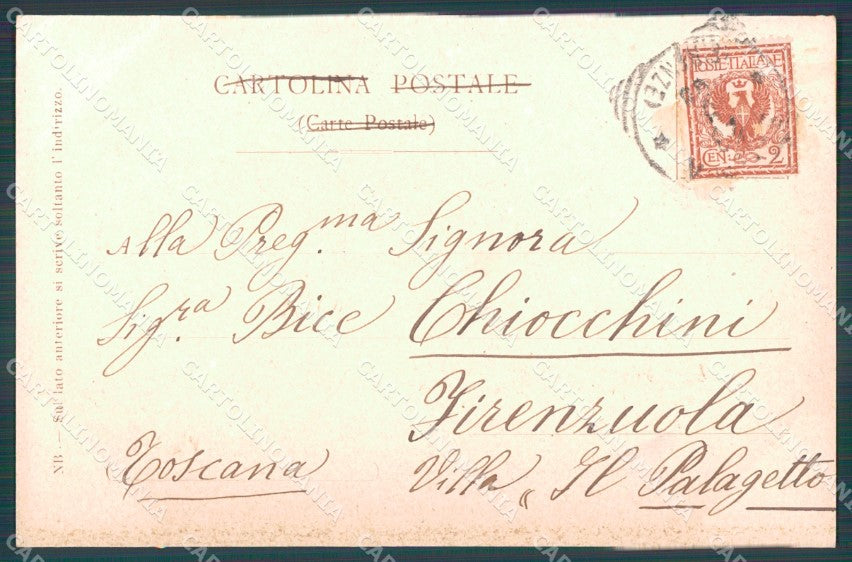 CARTOLINA POSTALE
(Carte Postale)
POSTE ITALIANE
CEN. 2
Alla Preg.ma Signora
Sig.ra Bice Chiocchini
Firenzuola
Toscana
Villa „ Il Palagetto
NB. — Sul lato anteriore si scrive soltanto l'indirizzo.
CARTOLINOMANIA